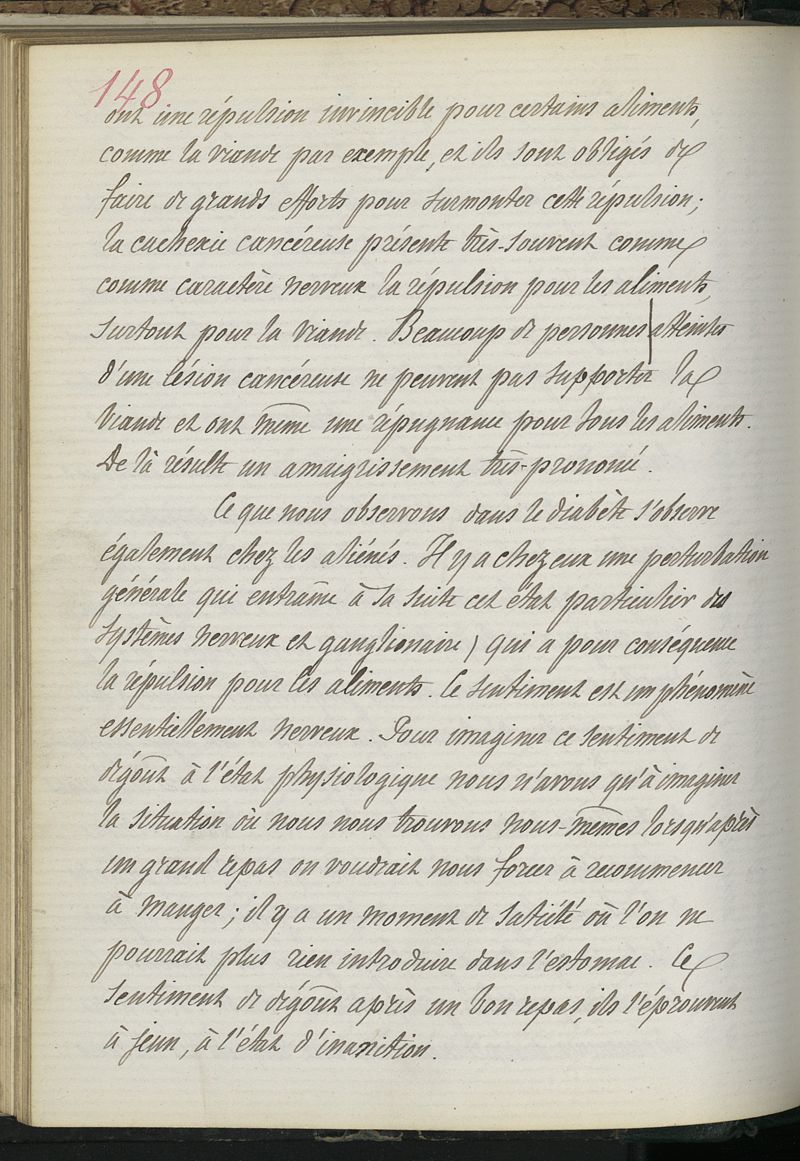 148
ont une répulsion invincible pour certains aliments,
comme la viande par exemple, et ils sont obligés de
faire de grands efforts pour surmonter cette répulsion;
la cachexie cancéreuse présente très-souvent comme
comme caractère nerveux la répulsion pour les aliments,
surtout pour la viande. Beaucoup de personnes atteintes
d'une lésion cancéreuse ne peuvent pas supporter la
viande et ont même une répugnance pour tous les aliments.
De là résulte un amaigrissement très-prononcé.
Ce que nous observons dans le diabète s'observe
également chez les aliénés. Il y a chez eux une perturbation
générale qui entraîne à sa suite cet état particulier des
systèmes nerveux et ganglionaire) qui a pour conséquence
la répulsion pour les aliments. Ce sentiment est un phénomène
essentiellement nerveux. Pour imaginer ce sentiment de
dégoût à l'état physiologique nous n'avons qu'à imaginer
la situation où nous nous trouvons nous-mêmes lorsqu'après
un grand repas on voudrait nous forcer à recommencer
à manger; il y a un moment de satiété où l'on ne
pourrait plus rien introduire dans l'estomac. Ce
sentiment de dégoût après un bon repas, ils l'éprouvent
à jeun, à l'état d'inanition.